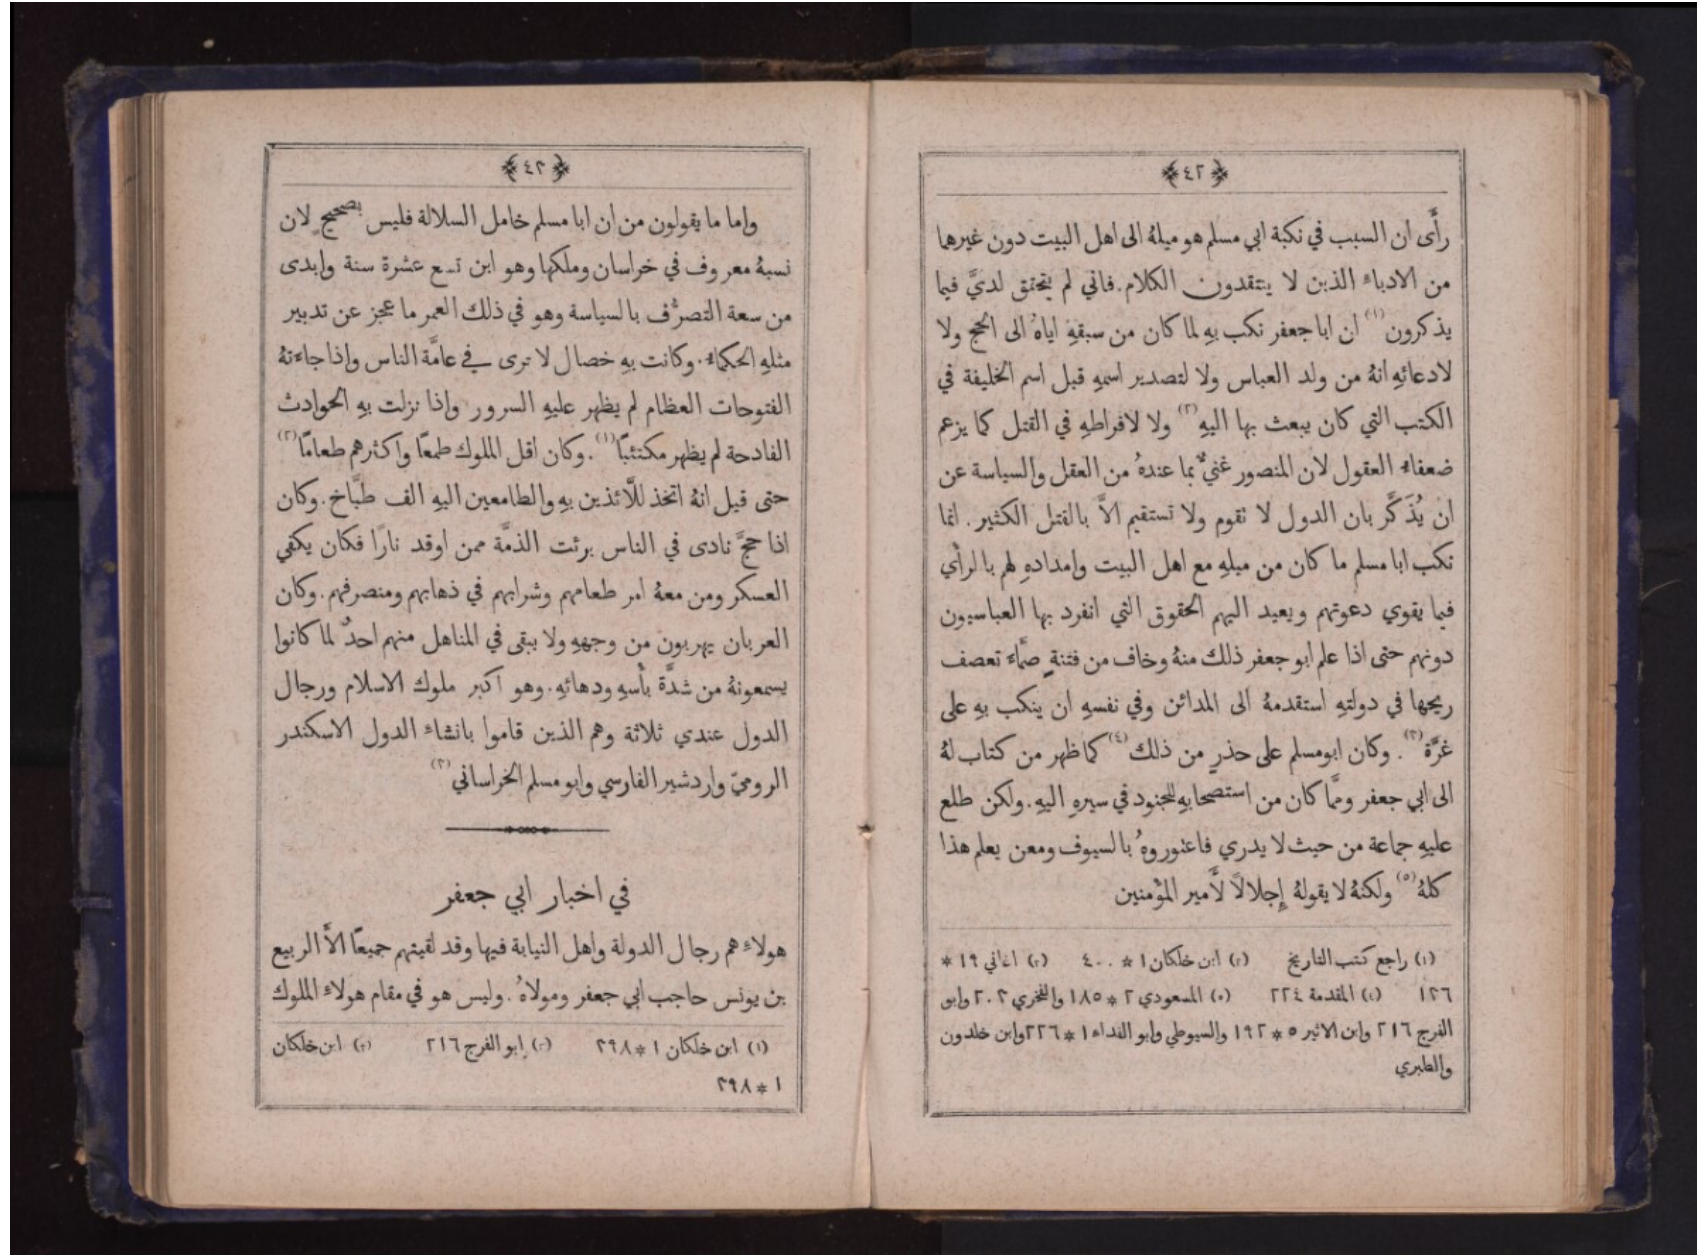 ﴿٤٢﴾
رأَى ان السبب في نكبة ابي مسلم هو ميلهُ الى اهل البيت دون غيرها
من الادباء الذين لا ينتقدون الكلام. فاني لم يتحقق لديَّ فيما
يذكرون (١) ان ابا جعفر نكب بهِ لما كان من سبقهِ اياهُ الى الحج ولا
لادعائهِ انهُ من ولد العباس ولا لتصدير اسمهِ قبل اسم الخليفة في
الكتب التي كان يبعث بها اليهِ (٢) ولا لافراطهِ في القتل كما يزعم
ضعفاء العقول لان المنصور غنيٌّ بما عندهُ من العقل والسياسة عن
ان يُذَكَّر بان الدول لا تقوم ولا تستقيم الاَّ بالقتل الكثير. انما
نكب ابا مسلم ما كان من ميلهِ مع اهل البيت وامدادهِ لهم بالرأي
فيما يقوي دعوتهم ويعيد اليهم الحقوق التي انفرد بها العباسيون
دونهم حتى اذا علم ابو جعفر ذلك منهُ وخاف من فتنةٍ صمَّاء تعصف
ريحها في دولتهِ استقدمهُ الى المدائن وفي نفسهِ ان ينكب بهِ على
غرَّة (٣). وكان ابو مسلم على حذرٍ من ذلك (٤) كما ظهر من كتاب لهُ
الى ابي جعفر وممَّا كان من استصحابهِ للجنود في سيرهِ اليهِ. ولكن طلع
عليهِ جماعة من حيث لا يدري فاعتوروهُ بالسيوف ومعن يعلم هذا
كلهُ (٥) ولكنهُ لا يقولهُ إِجلالاً لأَمير المؤْمنين
(١) راجع كتب التاريخ (٢) ابن خلكان ١ * ٤٠٠ (٣) اغاني ١٩ *
١٢٦ (٤) المقدمة ٢٢٤ (٥) المسعودي ٢ * ١٨٥ والفخري ٢٠٢ وابو
الفرج ٢١٦ وابن الاثير ٥ * ١٩٢ والسيوطي وابو الفداء ١ * ٢٢٦ وابن خلدون
والطبري
﴿٤٣﴾
واما ما يقولون من ان ابا مسلم خامل السلالة فليس بصحيحٍ لان
نسبهُ معروف في خراسان وملكها وهو ابن تسع عشرة سنة وابدى
من سعة التصرُّف بالسياسة وهو في ذلك العمر ما عجز عن تدبير
مثلهِ الحكماء. وكانت بهِ خصال لا ترى في عامَّة الناس واذا جاءتهُ
الفتوحات العظام لم يظهر عليهِ السرور واذا نزلت بهِ الحوادث
الفادحة لم يظهر مكتئبًا (١). وكان اقل الملوك طمعًا واكثرهم طعامًا (٢)
حتى قيل انهُ اتخذ للَّائذين بهِ والطامعين اليهِ الف طبَّاخ. وكان
اذا حجَّ نادى في الناس برئت الذمَّة ممن اوقد نارًا فكان يكفي
العسكر ومن معهُ امر طعامهم وشرابهم في ذهابهم ومنصرفهم. وكان
العربان يهربون من وجههِ ولا يبقى في المناهل منهم احدٌ لما كانوا
يسمعونهُ من شدَّة بأْسهِ ودهائهِ. وهو اكبر ملوك الاسلام ورجال
الدول عندي ثلاثة وهم الذين قاموا بانشاء الدول الاسكندر
الروميّ واردشير الفارسي وابو مسلم الخراساني (٣)
في اخبار ابي جعفر
هولاءِ هم رجال الدولة واهل النيابة فيها وقد لقيتهم جميعًا الاَّ الربيع
بن يونس حاجب ابي جعفر ومولاهُ. وليس هو في مقام هولاءِ الملوك
(١) ابن خلكان ١ * ٣٩٨ (٢) ابو الفرج ٢١٦ (٣) ابن خلكان
١ * ٣٩٨